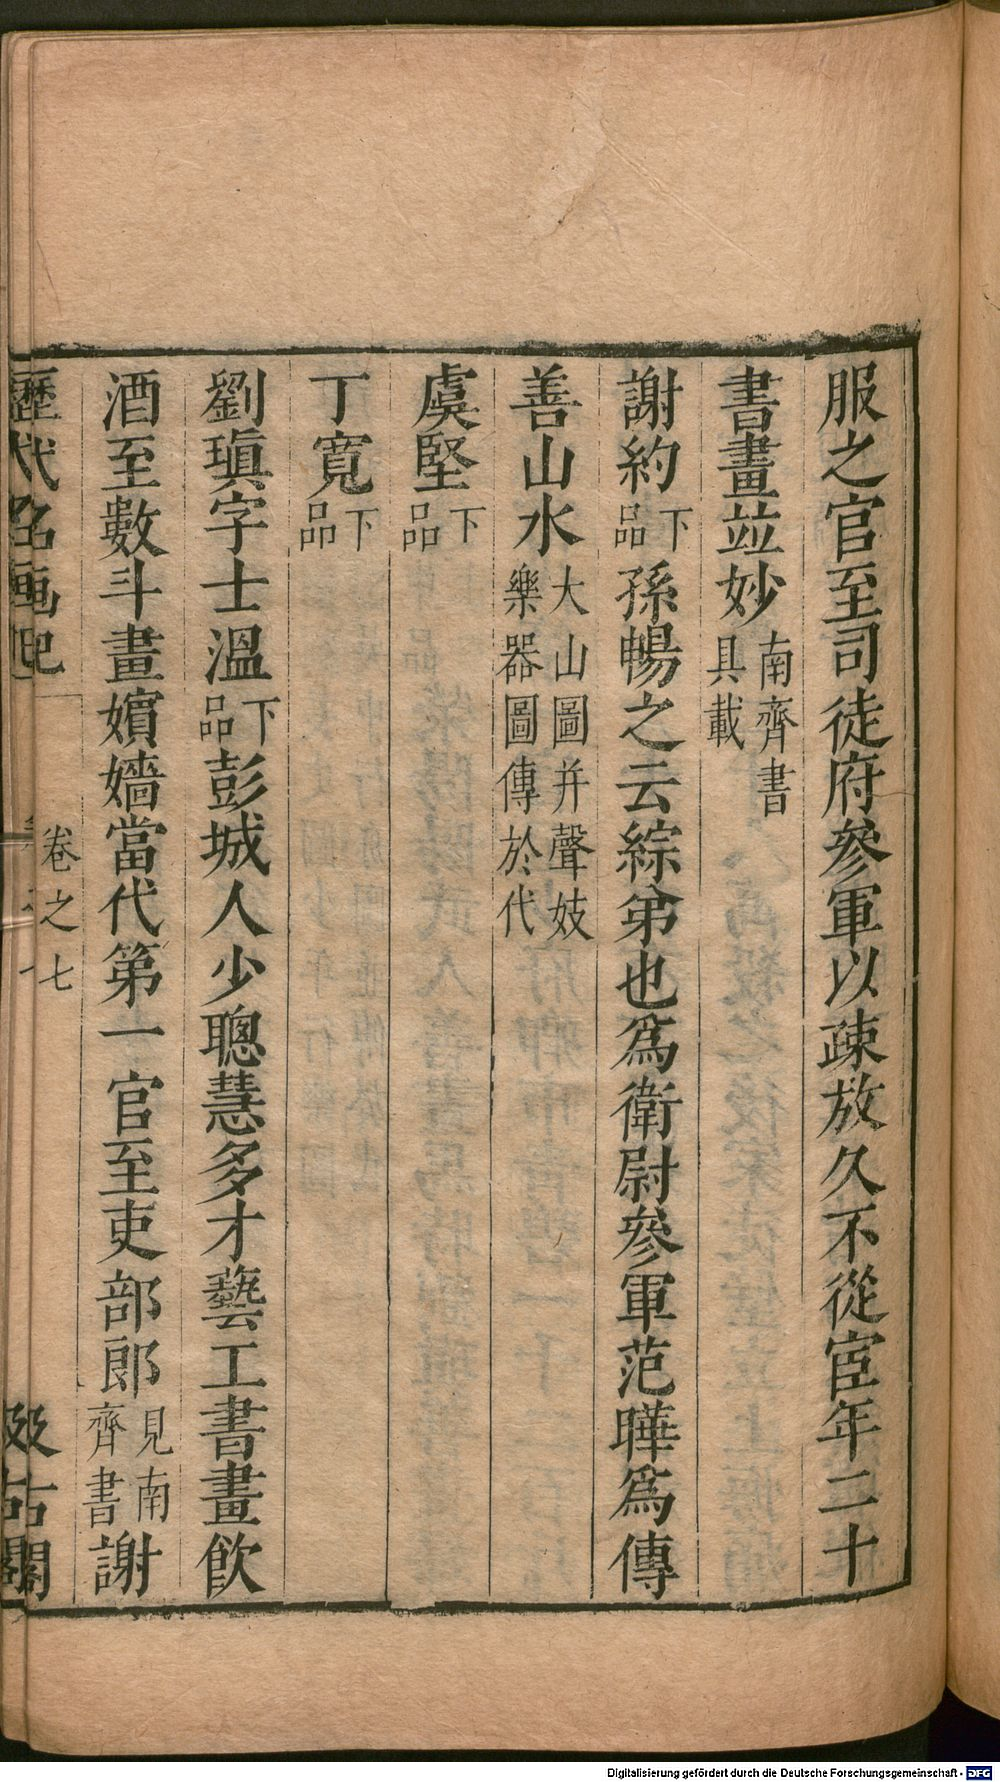 服之官至司徒府參軍以疎放久不從宦年二十
書畫竝妙南齊書具載
謝約下品孫暢之云綜弟也爲衛尉參軍范曄爲傳
善山水大山圖并聲妓樂器圖傳於代
虞堅下品
丁寬下品
劉瑱字士溫下品彭城人少聰慧多才藝工書畫飲
酒至數斗畫嬪嬙當代第一官至吏部郎見南齊書謝
歷代名画記 卷之七 汲古閣
Digitalisierung gefördert durch die Deutsche Forschungsgemeinschaft - DFG